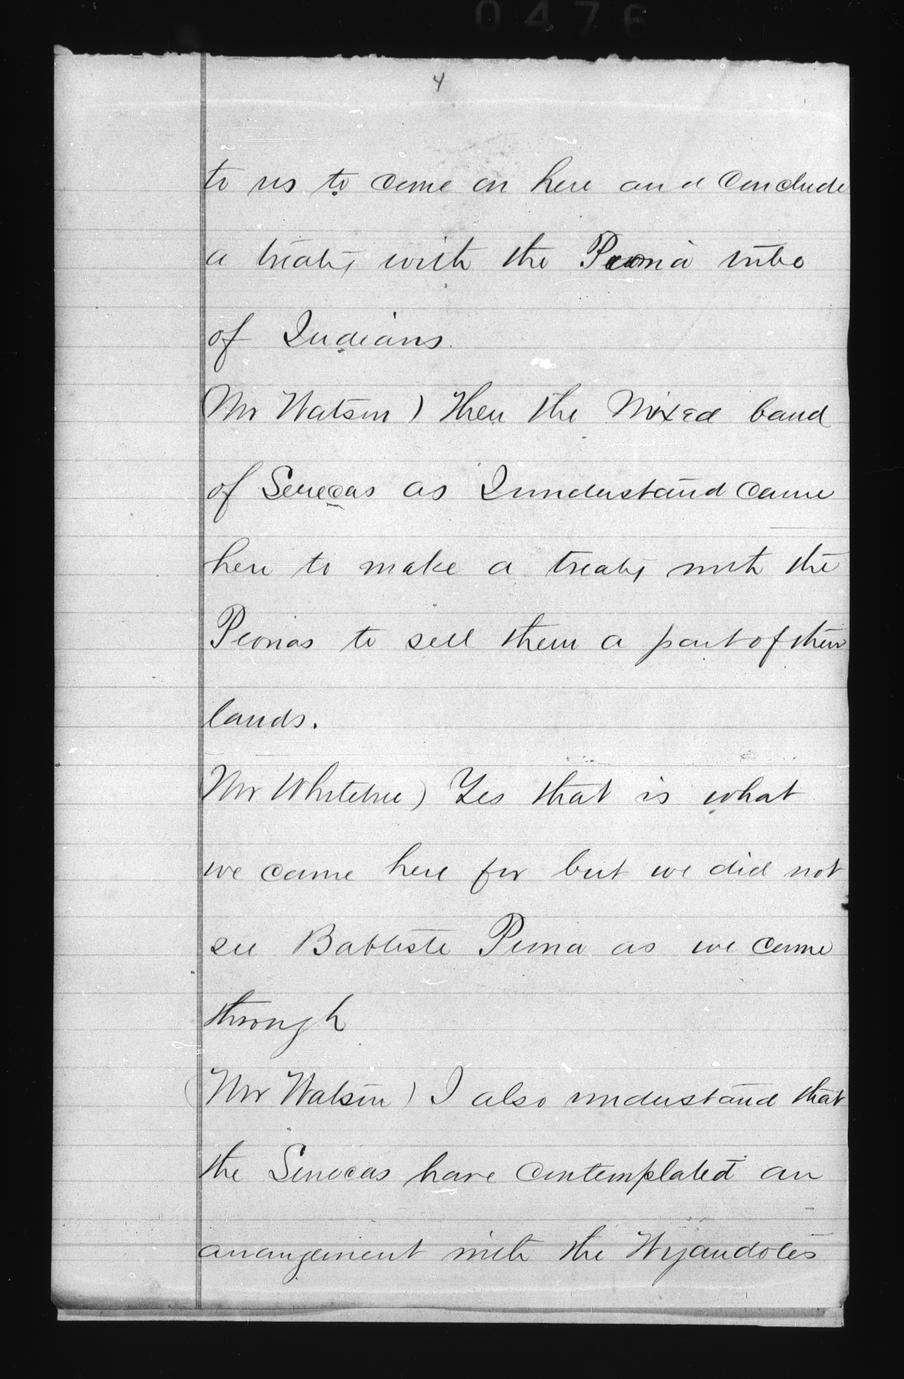 0476
4
to us to come on here and conclude
a treaty with the Peoria tribe
of Indians.
(Mr Watson) Then the Mixed band
of Senecas as I understand came
here to make a treaty with the
Peorias to sell them a part of their
lands.
Mr Whitetree) Yes that is what
we came here for but we did not
see Babtiste Peoria as we came
through
(Mr Watson) I also understand that
the Senecas have contemplated an
arrangement with the Wyandotes